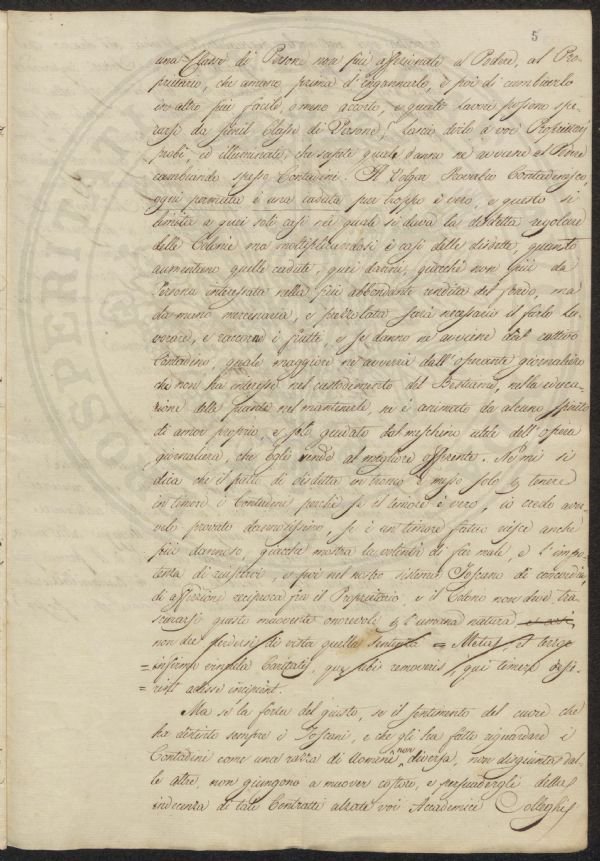 5
una Classe di Persone non più affezionate al Podere, al Pro-
prietario, che amano prima d'ingannarlo, e poi di cambiarlo
in altro più facile, o meno accorto, e quali lavori possono spe-
rarsi da simil Classe di Persone? Lascio dirlo a voi Proprietarj
probi, ed illuminati, che sapete quale danno ne avviene al
cambiando spesso Contadini. Il Volgar Proverbio Contadinesco,
ogni permuta è una caduta pur troppo è vero, e questo si
limita a quei soli casi nei quali si dava la disdetta regolare
delle Colonie ma moltiplicandosi i casi delle disdette, quanto
aumentano quelle cadute, quai danni, giacchè non più da
Persona interessata nella più abbondante rendita del fondo, ma
da mano mercenaria, e prezzolata sarà necessario il farlo la-
vorare, e raccorre i frutti, e se danno ne avviene dal cattivo
Contadino quale maggiore ne avverrà dall'operante giornaliero
che non ha interesse nel custodimento del Bestiame, nella educa-
zione delle piante nel mantenerle, ne è animato da alcuno spirito
di amor proprio, e solo guidato dal meschino utile dell'opera
giornaliera, che Egli vende al migliore offerente. Ne mi si
dica che il patto di disdetta in tronco è messo solo per tenere
in timore i Contadini perchè se il timore è vero, io credo aver-
velo provato dannosissimo, se è un timore falso riesce anche
più dannoso, giacchè mostra la volontà di far male, e l'impo-
tenza di riuscirvi, e poi nel nostro sistema Toscano di concordia,
di affezione reciproca fra il Proprietario, e il Colono non devesi tra-
scurarsi questo movente onorevole per l'umana natura
non dee perdersi di vista quella sentenza = Metus, et terror
= infirma vincula Caritatis, qui ubi removeris, qui timere desi-
= rint odisse incipient.
Ma se la forza del giusto, se il sentimento del cuore che
ha distinto sempre i Toscani, e che gli ha fatto riguardare i
Contadini come una razza di Uomini non diversa, non disgiunta dal-
le altre, non giungono a muover costoro, e persuadergli della
indecenza di tali Contratti alzate voi Accademici Colleghi